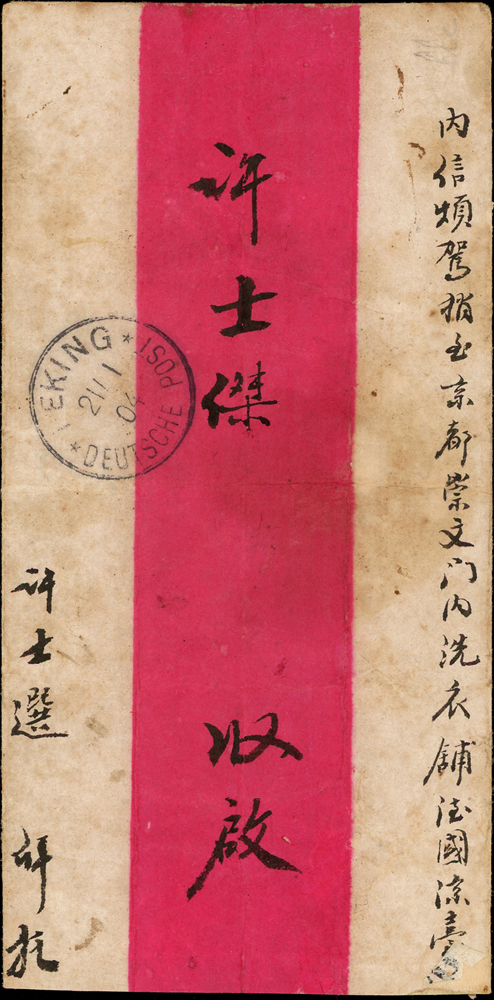 内信煩駕捎至京都崇文門内洗衣舖國
許士傑 收啟
許士選 托
PEKING
DEUTSCHE POST
21/1
04